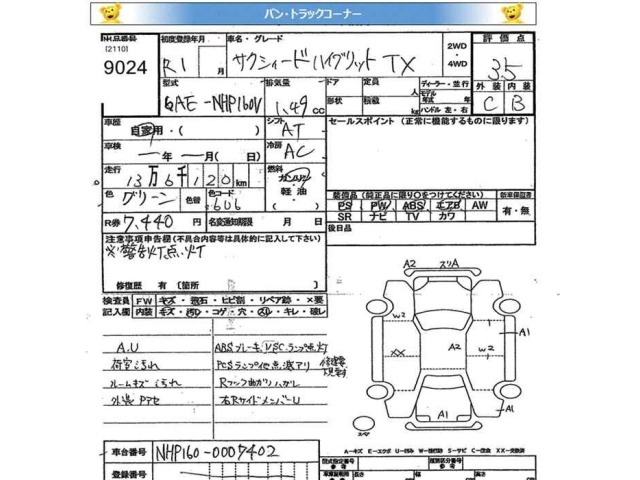 バン・トラックコーナー
出品番号 初度登録年月 車名・グレード 2WD・4WD 評価点
[2110]
9024 R1 月 サクシィードハイブリット TX 3.5
型式 排気量 ドア 定員 人 ディーラー・並行
外装 内装
6AE-NHP160V 1.49 CC 形状 積載 kg モデル年式 年式 ハンドル 左・右
C B
車歴 シフト セールスポイント (正常に機能するものに限ります)
自家用・( ) AT
車検 冷房
年 月( 日) AC
走行 燃料
13万6千120km ガソリン・軽油
色 色替 色コード 装備品(純正品に限り○をつけてください) 新車保証書
グリーン 6U6 PS PW ABS エアB AW 有・無
R券 7,440 円 名変通知期限 月 日 SR ナビ TV カワ
注意事項申告欄(不具合内容等は具体的に記入して下さい) 後日品
※警告灯点灯
修復歴 有 〔箇所 〕
検査員 FW キズ・飛石・ヒビ割・リペア跡・×要
記入欄 内装 キズ・汚レ・コゲ・穴・スレ・キレ・破レ
A.U ABSブレーキ,VSCランプ点灯
荷室汚れ PCSランプ他点滅アリ 修復要
ルームキズ汚れ Rフック曲ガリハガレ
外装Pアセ 右RサイドメンバーU
A2 スリA
W2 W2 A1
XX A2
A1 A1
スペア
車台番号 NHP160-0007402
A-キズ E-エクボ U-凹み W-補修跡 S-サビ C-腐食 XX-交換済
登録番号